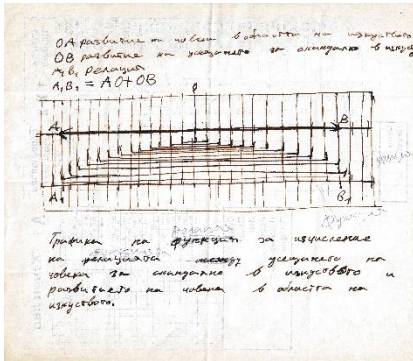 ОА развитие на човека в областта на изкуството
ОВ развитие на усещането за скандално в изкус
A₁B₁ Релация
A₁B₁ = AO + OB
О
А
В
A₁
B₁
релация
функция
Графика на функция за изчисление
на релацията между усещането на
човека за скандално в изкуството и
развитието на човека в областта на
изкуството.